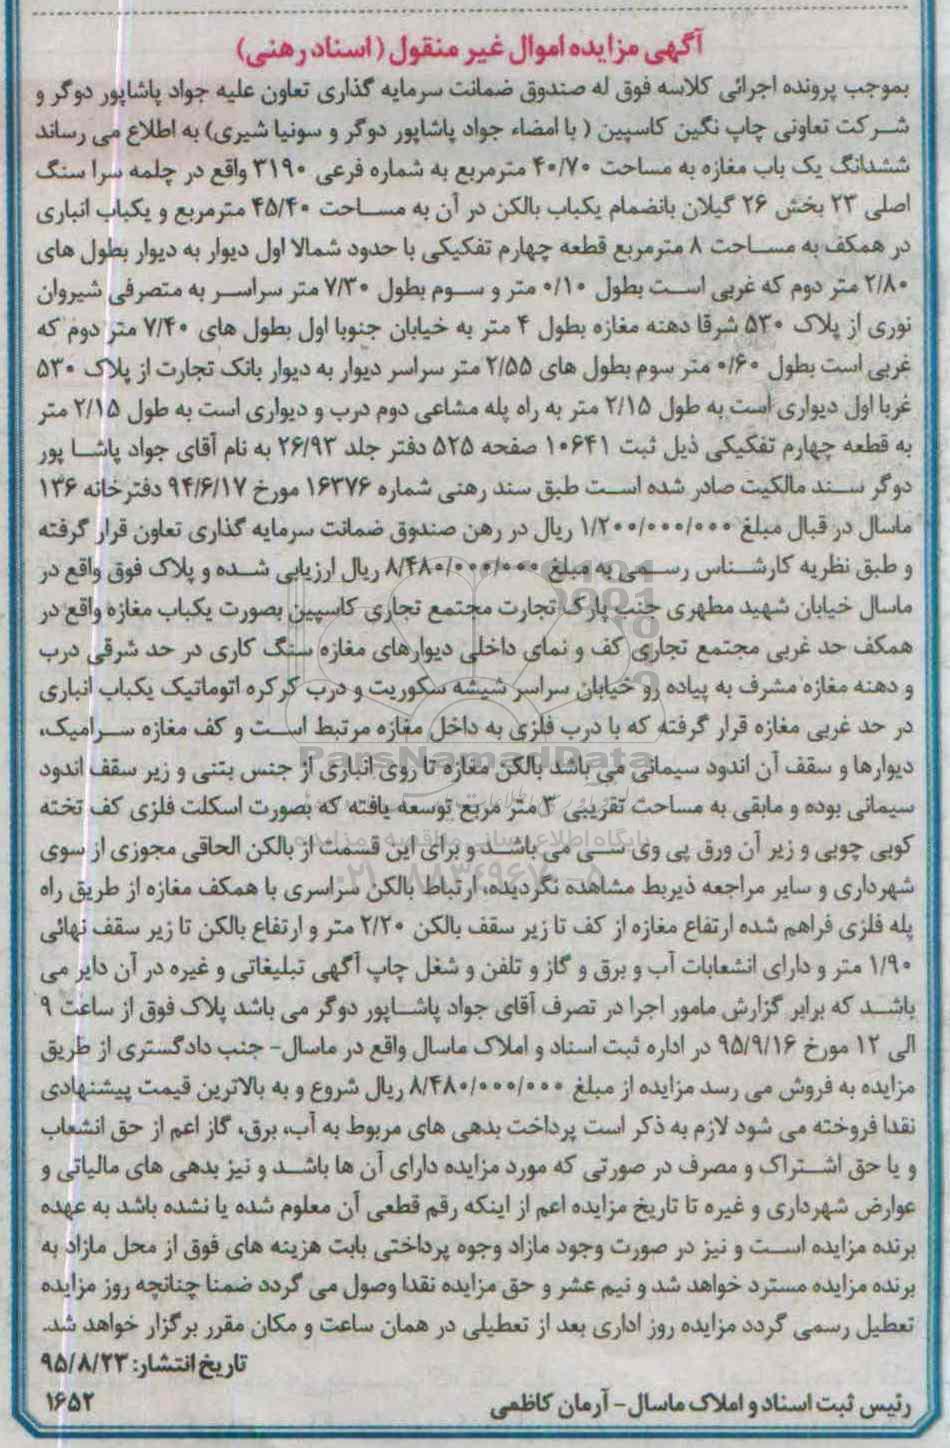 آگهی مزایده اموال غیر منقول (اسناد رهنی)
بموجب پرونده اجرائی کلاسه فوق له صندوق ضمانت سرمایه گذاری تعاون علیه جواد پاشاپور دوگر و
شرکت تعاونی چاپ نگین کاسپین ( با امضاء جواد پاشاپور دوگر و سونیا شیری) به اطلاع می رساند
ششدانگ یک باب مغازه به مساحت ۴۰/۷۰ مترمربع به شماره فرعی ۳۱۹۰ واقع در چلمه سرا سنگ
اصلی ۲۳ بخش ۲۶ گیلان بانضمام یکباب بالکن در آن به مساحت ۴۵/۴۰ مترمربع و یکباب انباری
در همکف به مساحت ۸ مترمربع قطعه چهارم تفکیکی با حدود شمالا اول دیوار به دیوار بطول های
۲/۸۰ متر دوم که غربی است بطول ۰/۱۰ متر و سوم بطول ۷/۳۰ متر سراسر به متصرفی شیروان
نوری از پلاک ۵۳۰ شرقا دهنه مغازه بطول ۴ متر به خیابان جنوبا اول بطول های ۷/۴۰ متر دوم که
غربی است بطول ۰/۶۰ متر سوم بطول های ۲/۵۵ متر سراسر دیوار به دیوار بانک تجارت از پلاک ۵۳۰
غربا اول دیواری است به طول ۲/۱۵ متر به راه پله مشاعی دوم درب و دیواری است به طول ۲/۱۵ متر
به قطعه چهارم تفکیکی ذیل ثبت ۱۰۶۴۱ صفحه ۵۲۵ دفتر جلد ۲۶/۹۳ به نام آقای جواد پاشا پور
دوگر سند مالکیت صادر شده است طبق سند رهنی شماره ۱۶۳۷۶ مورخ ۹۴/۶/۱۷ دفترخانه ۱۳۶
ماسال در قبال مبلغ ۱/۲۰۰/۰۰۰/۰۰۰ ریال در رهن صندوق ضمانت سرمایه گذاری تعاون قرار گرفته
و طبق نظریه کارشناس رسمی به مبلغ ۸/۴۸۰/۰۰۰/۰۰۰ ریال ارزیابی شده و پلاک فوق واقع در
ماسال خیابان شهید مطهری جنب پارک تجارت مجتمع تجاری کاسپین بصورت یکباب مغازه واقع در
همکف حد غربی مجتمع تجاری کف و نمای داخلی دیوارهای مغازه سنگ کاری در حد شرقی درب
و دهنه مغازه مشرف به پیاده رو خیابان سراسر شیشه سکوریت و درب کرکره اتوماتیک یکباب انباری
در حد غربی مغازه قرار گرفته که با درب فلزی به داخل مغازه مرتبط است و کف مغازه سرامیک،
ParsNamadData
دیوارها و سقف آن اندود سیمانی می باشد بالکن مغازه تا روی انباری از جنس بتنی و زیر سقف اندود
سیمانی بوده و مابقی به مساحت تقریبی ۳ متر مربع توسعه یافته که بصورت اسکلت فلزی کف تخته
کوبی چوبی و زیر آن ورق پی وی سی می باشد و برای این قسمت از بالکن الحاقی مجوزی از سوی
شهرداری و سایر مراجعه ذیربط مشاهده نگردیده، ارتباط بالکن سراسری با همکف مغازه از طریق راه
پله فلزی فراهم شده ارتفاع مغازه از کف تا زیر سقف بالکن ۲/۲۰ متر و ارتفاع بالکن تا زیر سقف نهائی
۱/۹۰ متر و دارای انشعابات آب و برق و گاز و تلفن و شغل چاپ آگهی تبلیغاتی و غیره در آن دایر می
باشد که برابر گزارش مامور اجرا در تصرف آقای جواد پاشاپور دوگر می باشد پلاک فوق از ساعت ۹
الی ۱۲ مورخ ۹۵/۹/۱۶ در اداره ثبت اسناد و املاک ماسال واقع در ماسال- جنب دادگستری از طریق
مزایده به فروش می رسد مزایده از مبلغ ۸/۴۸۰/۰۰۰/۰۰۰ ریال شروع و به بالاترین قیمت پیشنهادی
نقدا فروخته می شود لازم به ذکر است پرداخت بدهی های مربوط به آب، برق، گاز اعم از حق انشعاب
و یا حق اشتراک و مصرف در صورتی که مورد مزایده دارای آن ها باشد و نیز بدهی های مالیاتی و
عوارض شهرداری و غیره تا تاریخ مزایده اعم از اینکه رقم قطعی آن معلوم شده یا نشده باشد به عهده
برنده مزایده است و نیز در صورت وجود مازاد وجوه پرداختی بابت هزینه های فوق از محل مازاد به
برنده مزایده مسترد خواهد شد و نیم عشر و حق مزایده نقدا وصول می گردد ضمنا چنانچه روز مزایده
تعطیل رسمی گردد مزایده روز اداری بعد از تعطیلی در همان ساعت و مکان مقرر برگزار خواهد شد.
تاریخ انتشار: ۹۵/۸/۲۳
رئیس ثبت اسناد و املاک ماسال- آرمان کاظمی ۱۶۵۲